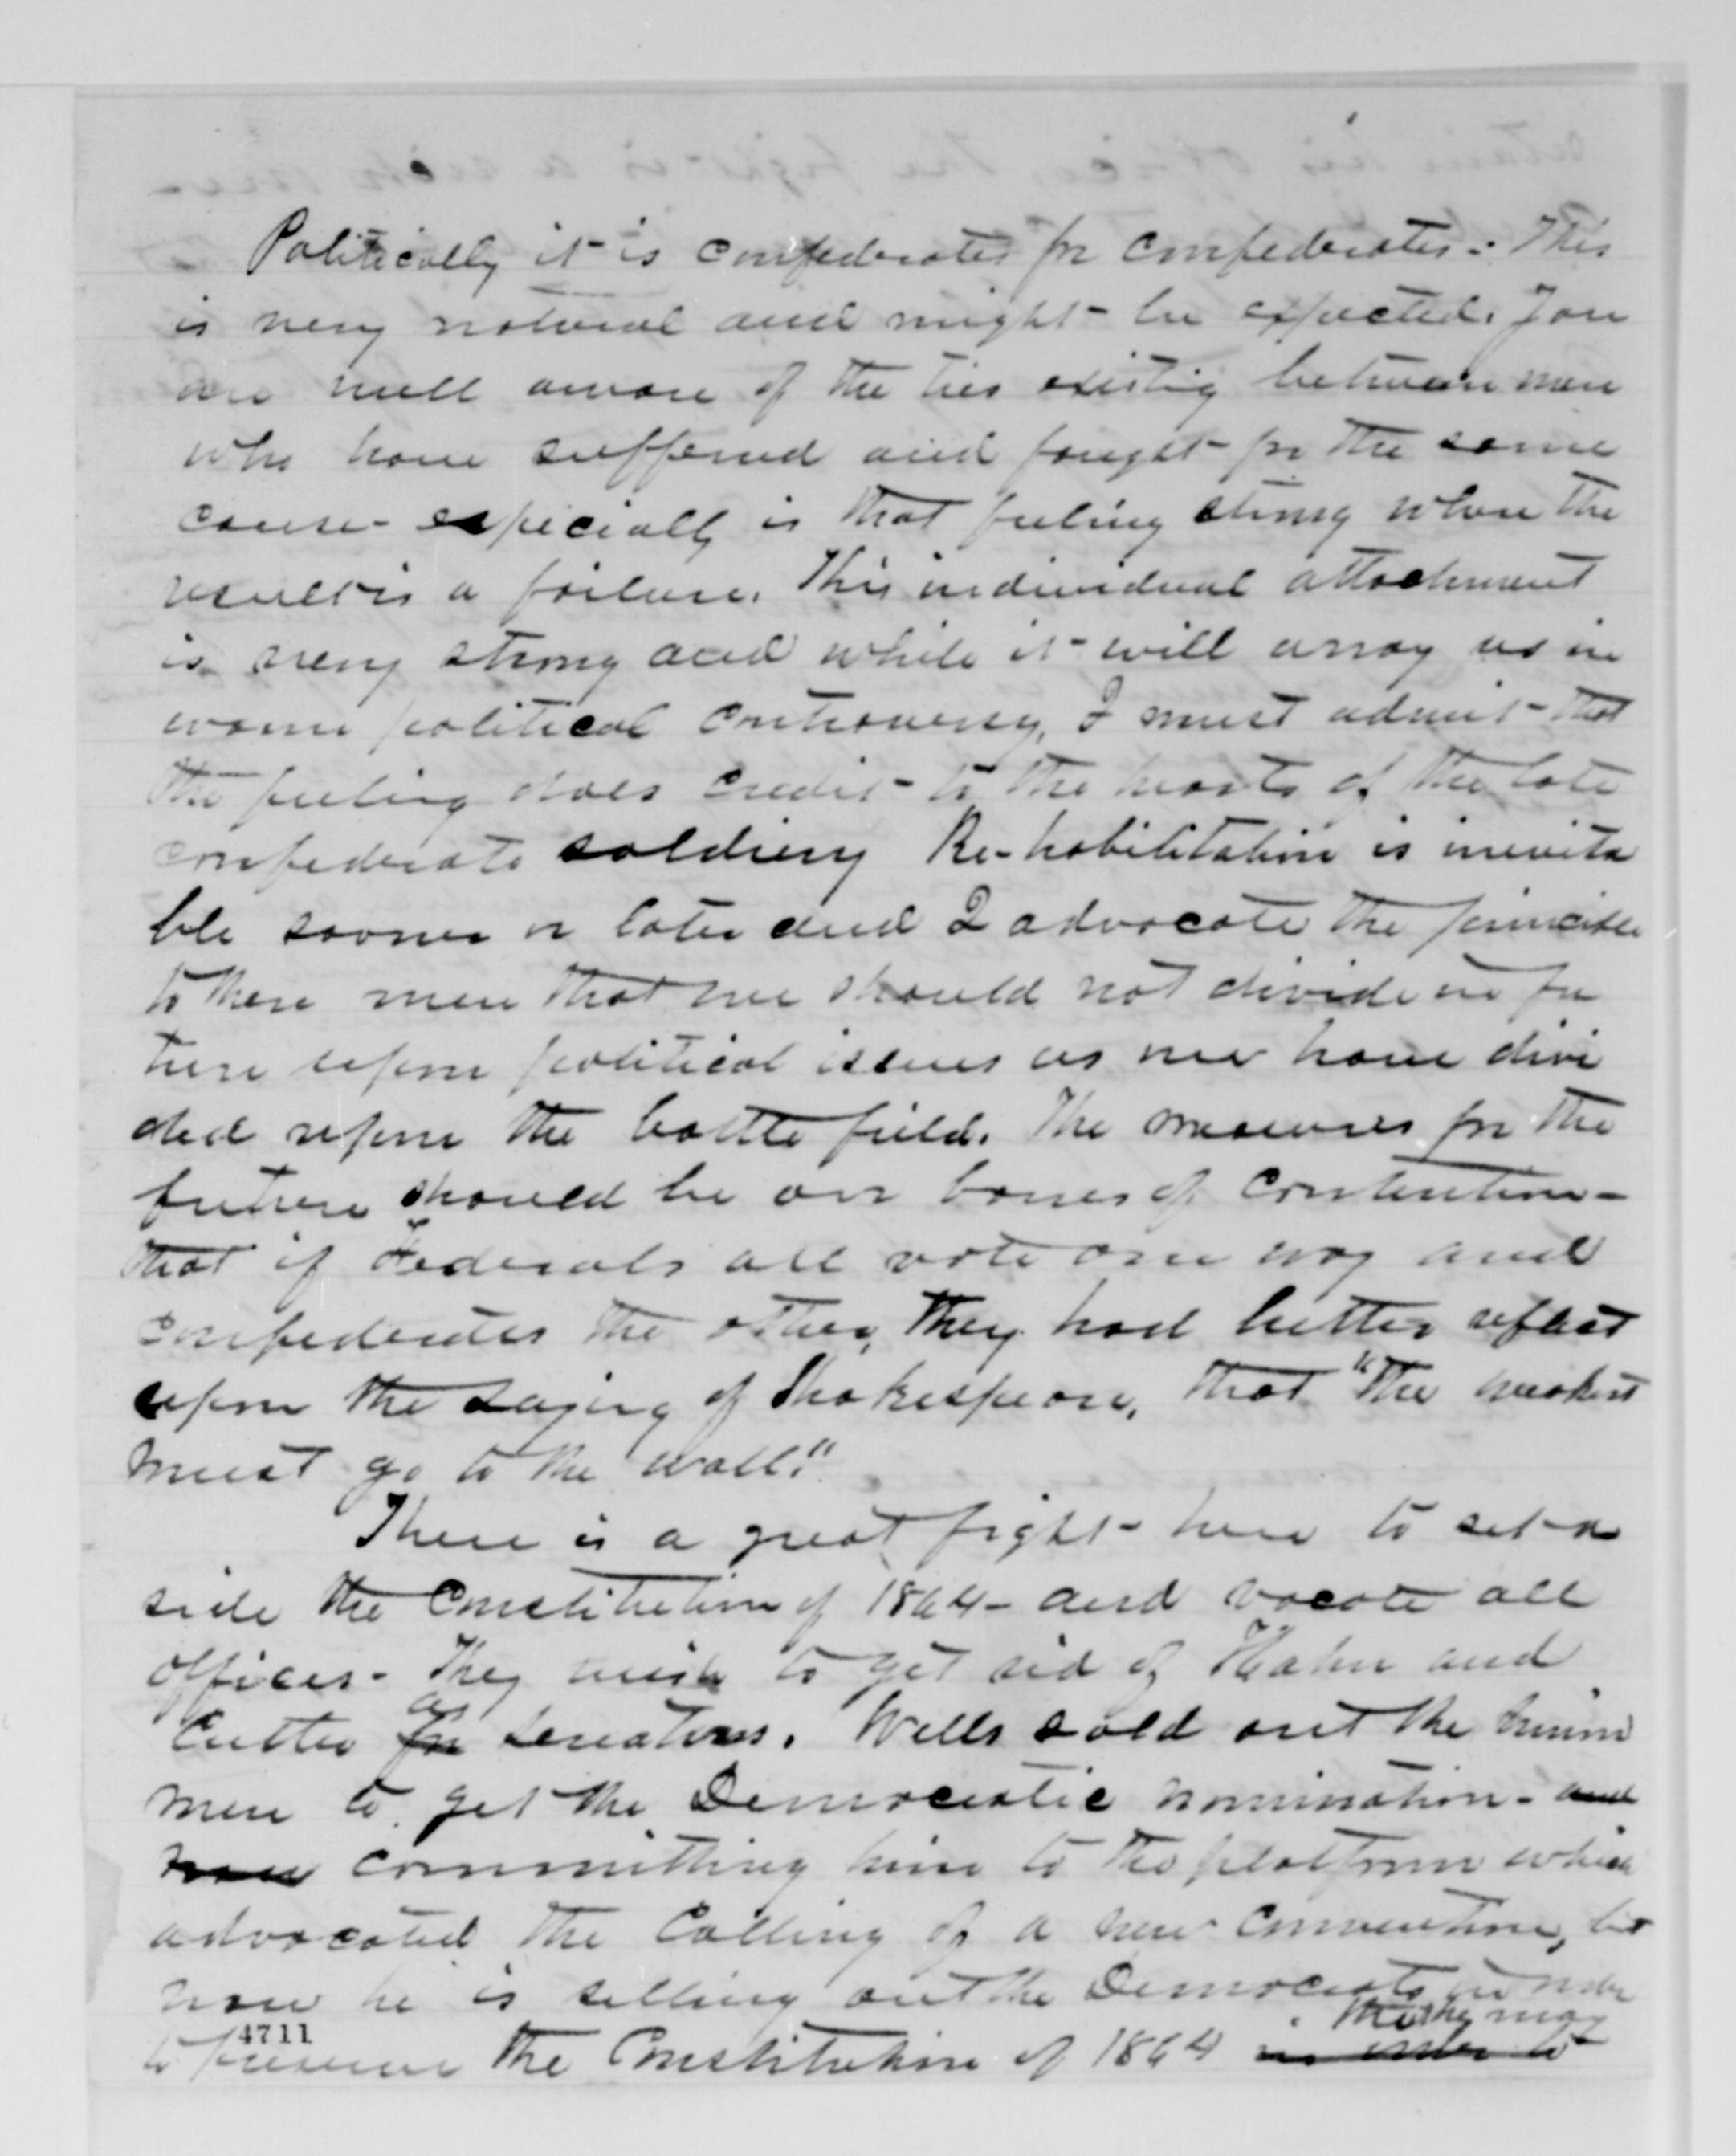 Politically it is confederates for confederates. This
is very natural and might be expected. You
are well aware of the ties existing between men
who have suffered and fought for the same
cause - especially is that feeling strong when the
result is a failure. This individual attachment
is very strong and while it will array us in
warm political controversy, I must admit that
the feeling does credit to the hearts of the late
confederate soldiery Re-habilitation is inevita
ble sooner or later and I advocate the principle
to these men that we should not divide in fu
ture upon political issues as we have divi
ded upon the battle field. The measures for the
future should be our bones of contention -
that if Federals all vote one way and
confederates the other, they had better reflect
upon the saying of Shakespeare, that "The weakest
must go to the wall."
There is a great fight here to set a
side the Constitution of 1864 - and vacate all
offices - They wish to get rid of Hahn and
Cutler for as senators. Wells sold out the Union
men to get the Democratic nomination - and
committing him to the platform which
advocated the calling of a new convention, but
now he is selling out the Democrats in order
to preserve the Constitution of 1864 in order to that he may
4711